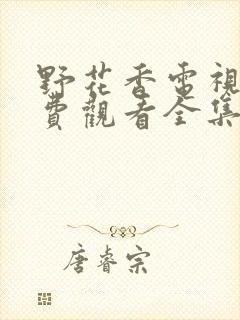 野花香電視
費觀看全集
唐睿宗